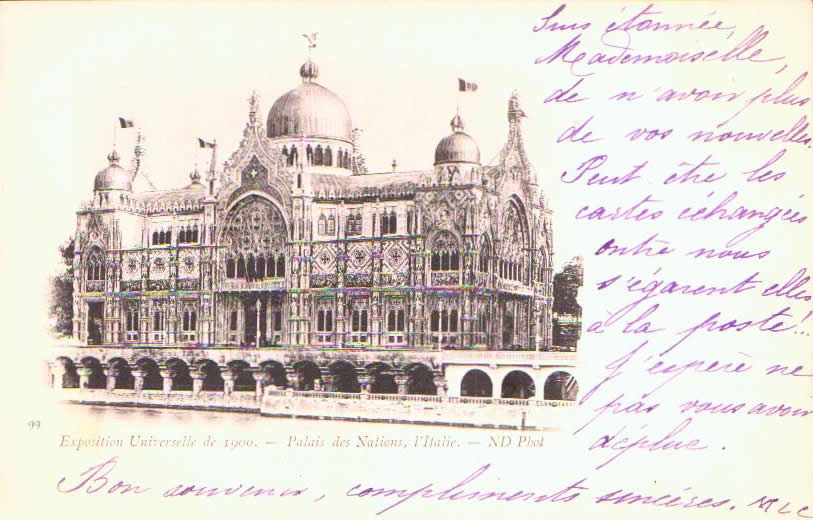 Suis étonnée,
Mademoiselle,
de n'avoir plus
de vos nouvelles.
Peut être les
cartes échangées
entre nous
s'égarent elles
à la poste!..
J'espère ne
pas vous avoir
déplue.
99
Exposition Universelle de 1900. — Palais des Nations, l'Italie. — ND Phot
Bon souvenir, compliments sincères. MLC